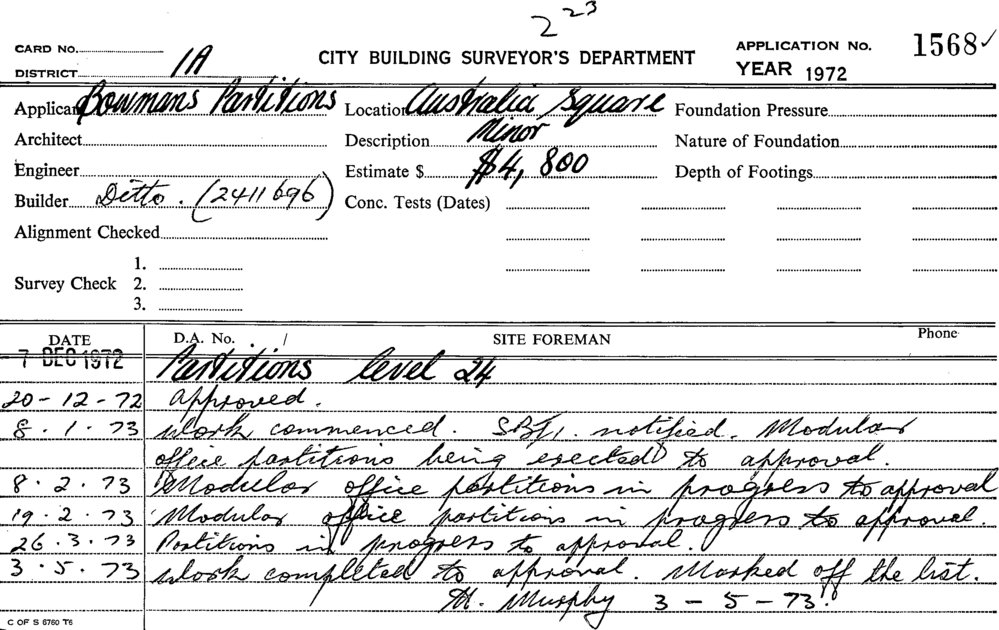 2 23
CARD No.
DISTRICT 1A
CITY BUILDING SURVEYOR'S DEPARTMENT
APPLICATION No. 1568 ✓
YEAR 1972
Applicant Bowmans Partitions
Location Australia Square
Foundation Pressure
Architect
Description Minor
Nature of Foundation
Engineer
Estimate $ $4,800
Depth of Footings
Builder Ditto. (2411696)
Conc. Tests (Dates)
Alignment Checked
Survey Check
1.
2.
3.
DATE D.A. No. / SITE FOREMAN Phone
7 DEC 1972 Partitions level 24
20-12-72 approved.
8.1.73 Work commenced. notified. Modular
office partitions being erected to approval.
8.2.73 Modular office partitions in progress to approval
19.2.73 Modular office partitions in progress to approval.
26.3.73 Partitions in progress to approval.
3.5.73 Work completed to approval. Marked off the list.
Murphy 3-5-73.
C OF S 6760 T6